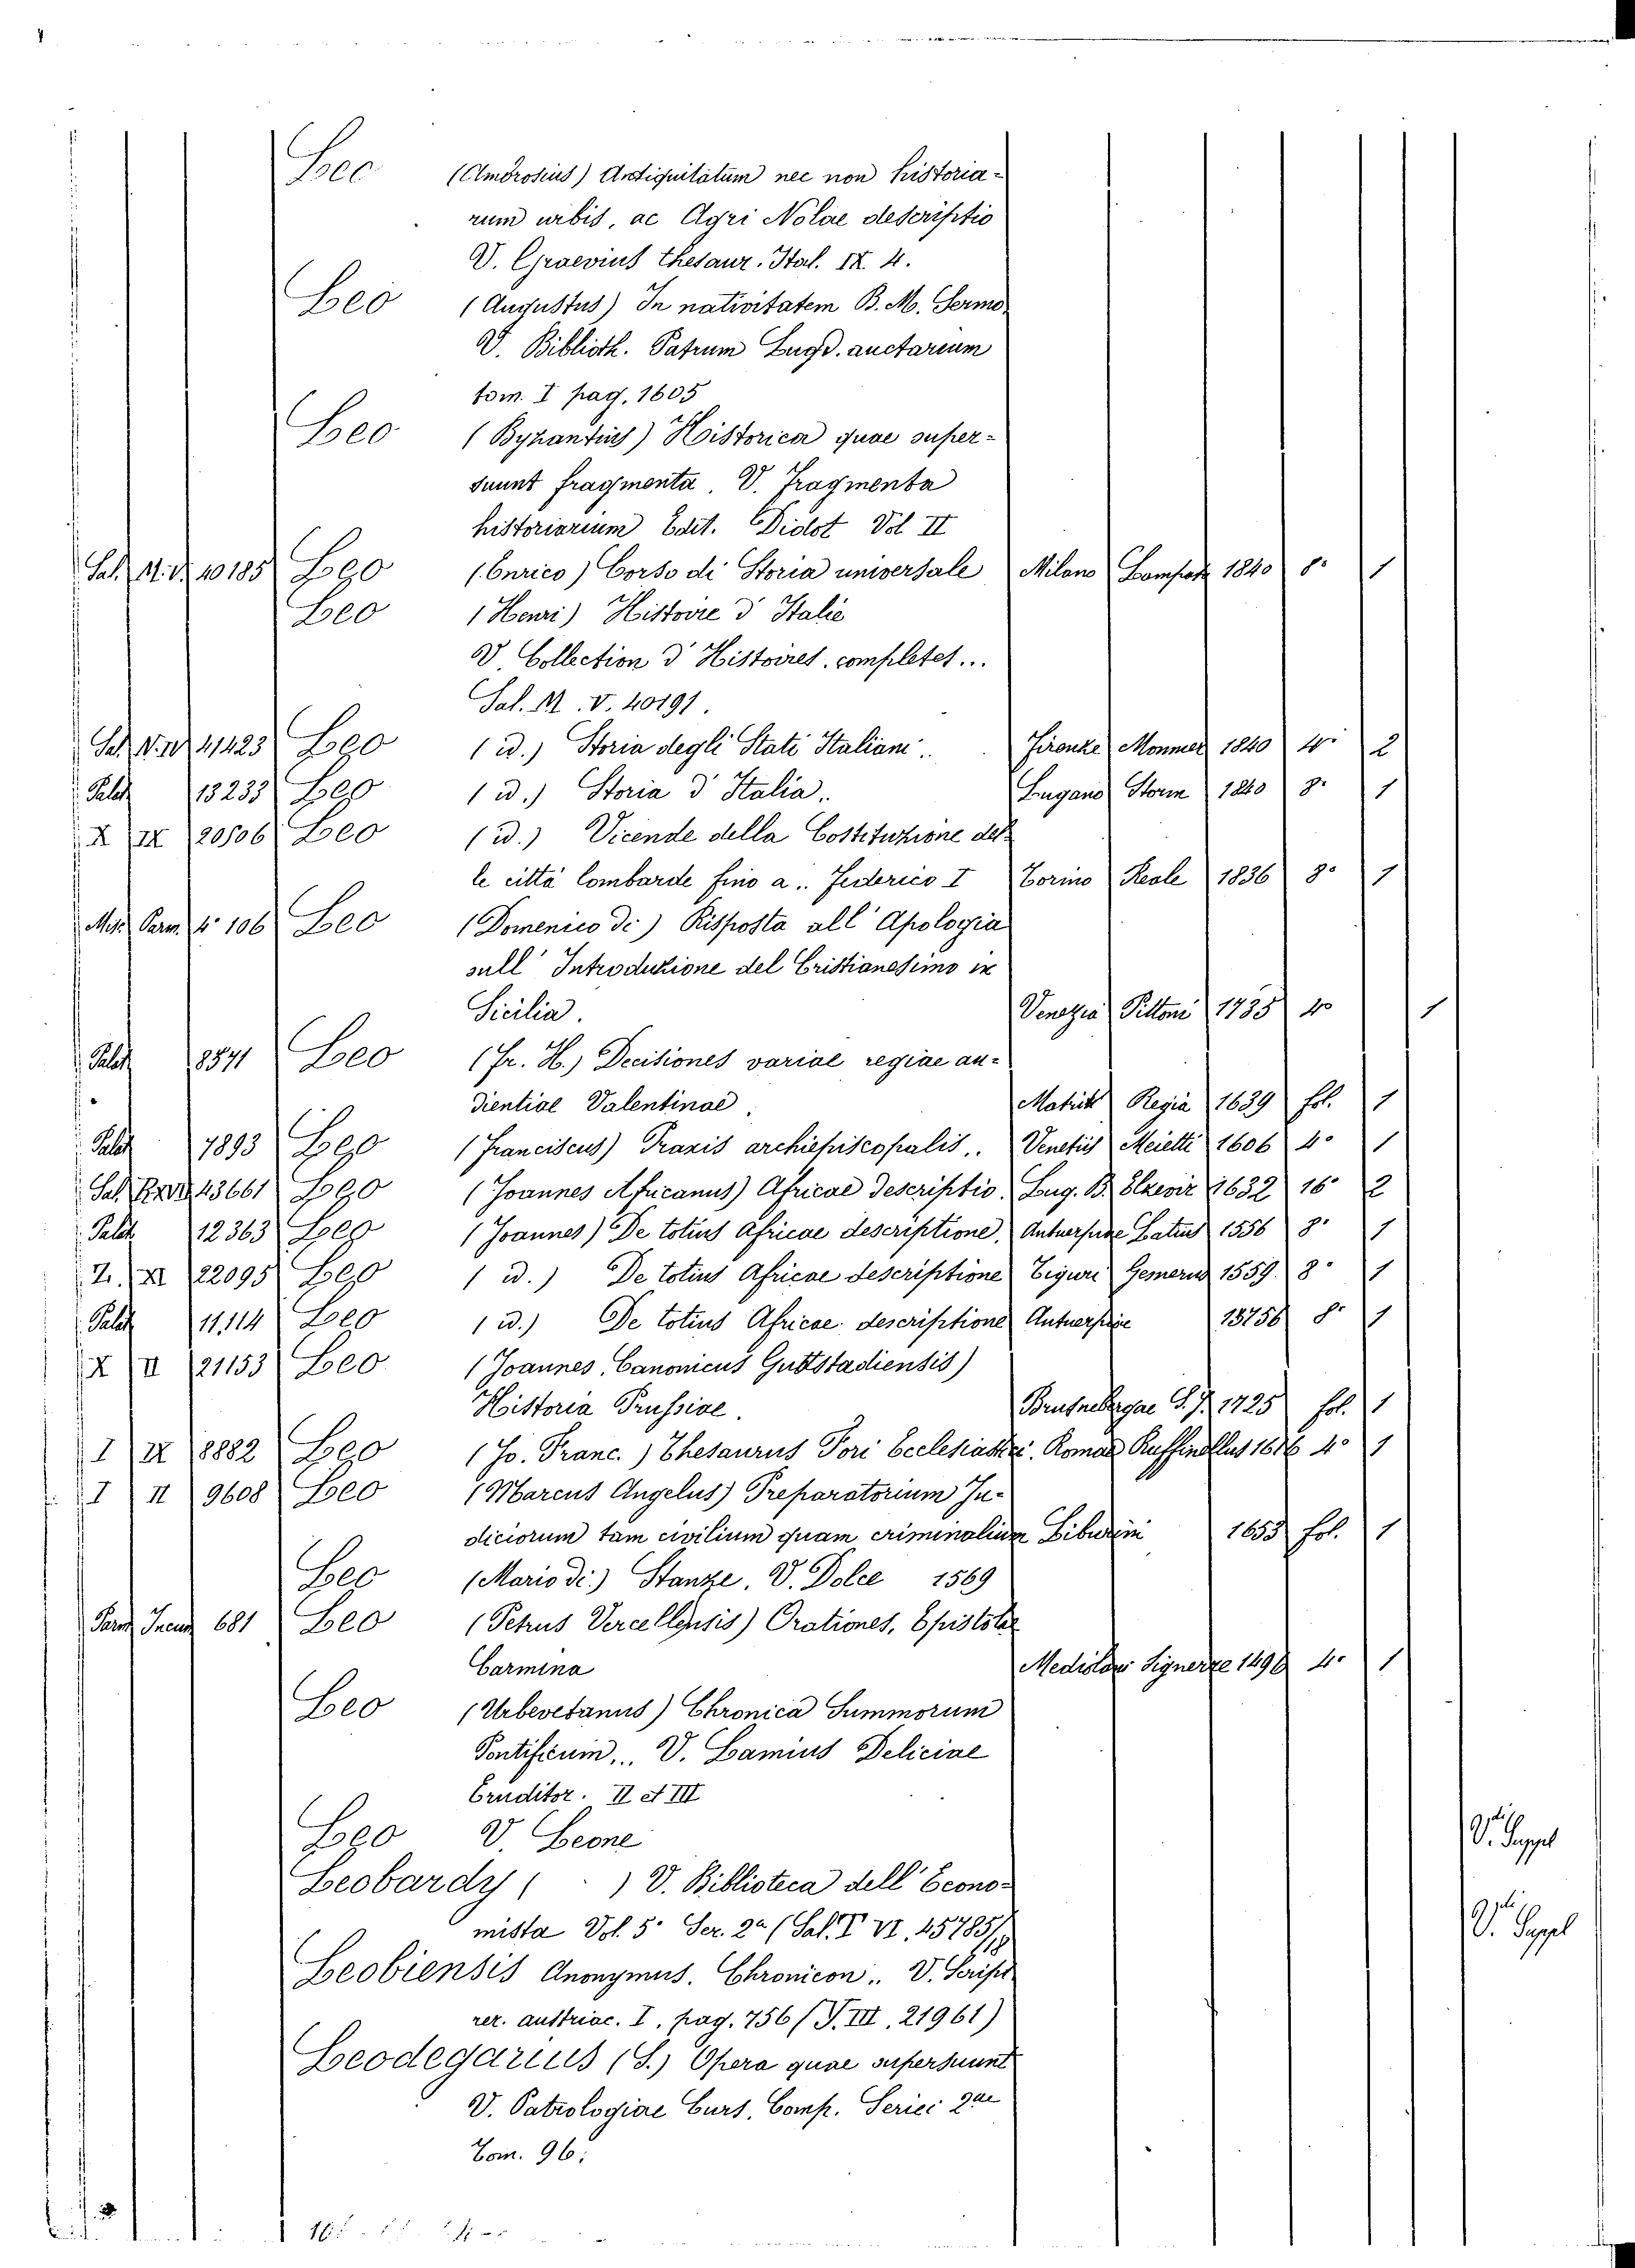 Leo (Ambrosius) Antiquitatum nec non historia-
rum urbis, ac Agri Nolae descriptio
V. Graevius thesaur. Ital. IX. 4.
Leo (Augustus) In nativitatem B. M. Sermo
V. Biblioth. Patrum Lugd. auctarium
tom. I pag. 1605
Leo (Byzantius) Historica quae super-
sunt fragmenta. V. Fragmenta
historiarum Edit. Didot Vol II
Sal. M. V. 40185 Leo (Enrico) Corso di Storia universale Milano 1840 8° 1
Leo (Henri) Histoire d'Italie
V. Collection d'Histoires completes...
Sal. M. V. 40191.
41423 Leo (id.) Storia degli Stati Italiani.. Firenze 1840 4° 2
Palat 13233 Leo (id.) Storia d'Italia. Lugano Storm 1840 8° 1
X IX 20506 Leo (id.) Vicende della Costituzione del-
le città lombarde fino a.. Federico I Torino Reale 1836 8° 1
Misc. Parm. 4° 106 Leo (Domenico di) Risposta all'Apologia
sull'Introduzione del Cristianesimo in
Sicilia. Venezia Pittoni 1735 4° 1
Palat 8541 Leo (Fr. H.) Decisiones variae regiae au-
dientiae Valentinae. Matriti Regia 1639 fol. 1
Palat 7893 Leo (Franciscus) Praxis archiepiscopalis.. Venetiis Meietti 1606 4° 1
Sal. 43661 Leo (Joannes Africanus) Africae descriptio. Lug. B. Elzevir 1632 16° 2
Palat 12363 Leo (Joannes) De totius Africae descriptione. Antuerpiae Latius 1556 8° 1
Z. XI 22095 Leo (id.) De totius Africae descriptione Tiguri Gesnerus 1559. 8° 1
Palat 11,114 Leo (id.) De totius Africae descriptione Antuerpiae 8° 1
X II 21153 Leo (Joannes, Canonicus Guttstadiensis)
Historia Prussiae. Brunsbergae S. J. 1725 fol. 1
I IX 8882 Leo (Jo. Franc.) Thesaurus Fori Ecclesiastici. Romae Ruffinellus 4° 1
I II 9608 Leo (Marcus Angelus) Preparatorium Ju-
diciorum tam civilium quam criminalium 1653 fol. 1
Leo (Mario di) Stanze. V. Dolce 1569
Parm. Incun 681 Leo (Petrus Vercellensis) Orationes, Epistolae
Carmina Mediolani Signerre 4° 1
Leo (Urbevetanus) Chronica Summorum
Pontificum... V. Lamius Deliciae
Eruditor. II et III
Leo V. Leone V. Suppl
Leobardy ( ) V. Biblioteca dell'Econo-
mista Vol. 5° Ser. 2a (Sal. T VI. 45785/18 V. Suppl
Leobiensis Anonymus. Chronicon.. V. Script
rer. austriac. I. pag. 756 (J. III. 21961)
Leodegarius (S.) Opera quae supersunt
V. Patrologiae Curs. Comp. Seriei 2ae
Tom. 96.